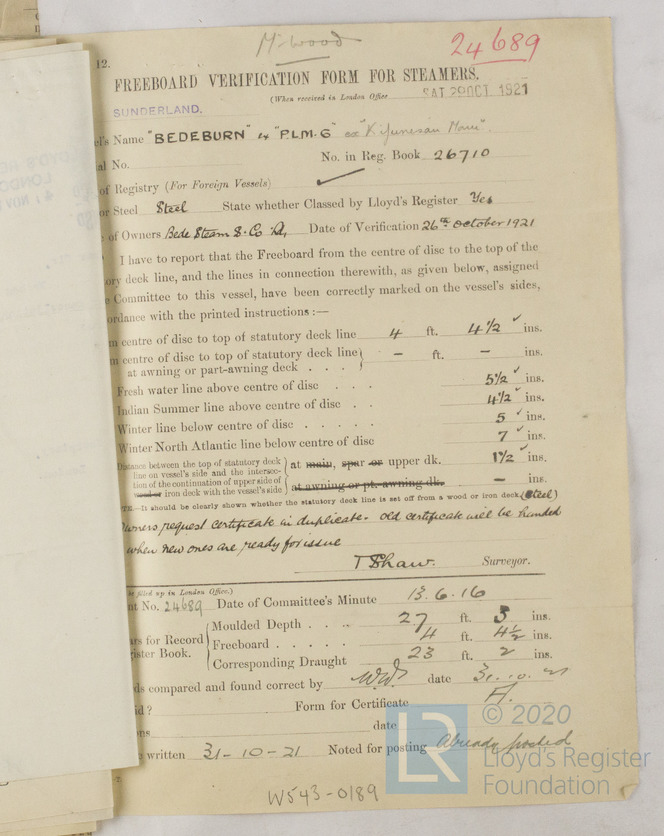 Mr Wood
24689
12.
FREEBOARD VERIFICATION FORM FOR STEAMERS.
(When received in London Office SAT. 29 OCT. 1921
SUNDERLAND.
el's Name "BEDEBURN" "P.L.M. 6" ex "Kifunesan Maru".
al No. No. in Reg. Book 26710
of Registry (For Foreign Vessels) ✓
or Steel Steel State whether Classed by Lloyd's Register Yes
of Owners Bede Steam S. Co Ld, Date of Verification 26th October 1921
I have to report that the Freeboard from the centre of disc to the top of the
ory deck line, and the lines in connection therewith, as given below, assigned
e Committee to this vessel, have been correctly marked on the vessel's sides,
ordance with the printed instructions :—
m centre of disc to top of statutory deck line 4 ft. 4 1/2 ✓ ins.
m centre of disc to top of statutory deck line } – ft. – ins.
at awning or part-awning deck . . .
Fresh water line above centre of disc . . . 5 1/2 ✓ ins.
Indian Summer line above centre of disc . . 4 1/2 ✓ ins.
Winter line below centre of disc . . . . . 5 ✓ ins.
Winter North Atlantic line below centre of disc 7 ✓ ins.
Distance between the top of statutory deck
line on vessel's side and the intersec- } at main, spar or upper dk. 1 1/2 ✓ ins.
tion of the continuation of upper side of
wood or iron deck with the vessel's side } at awning or pt. awning dk. – ins.
TE.—It should be clearly shown whether the statutory deck line is set off from a wood or iron deck (Steel)
Owners request certificate in duplicate. old certificate will be handed
when new ones are ready for issue
T Shaw. Surveyor.
be filled up in London Office.)
nt No. 24689 Date of Committee's Minute 13.6.16
Moulded Depth . . . . 27 ft. 3 ins.
ars for Record
gister Book. { Freeboard . . . . . 4 ft. 4 1/2 ins.
Corresponding Draught 23 ft. 2 ins.
ds compared and found correct by W.W. date 31.10.21
id ? Form for Certificate
ons date
e written 31-10-21 Noted for posting Already posted
W543-0189
LR © 2020
Lloyd's Register
Foundation